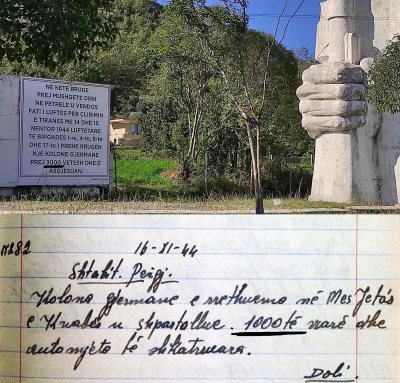 NE KETE RRUGE
PREJ MUSHQETE DERI
NE PETRELE U VENDOS
FATI I LUFTES PER CLIRIMIN
E TIRANES ME 14 DHE 15
NENTOR 1944 LUFTETARE
TE BRIGADES I-re, 4-te, 8-ta
DHE 17-te I PRENE RRUGEN
NJE KOLONE GJERMANE
PREJ 3000 VETESH DHE E
ASGJESUAN.
16-XI-44
Shtabit.
Kolona gjermane e rrethueme në Mes
e Krrabës u shpartallue. 1000 të vrarë dhe
automjete të
Doli.